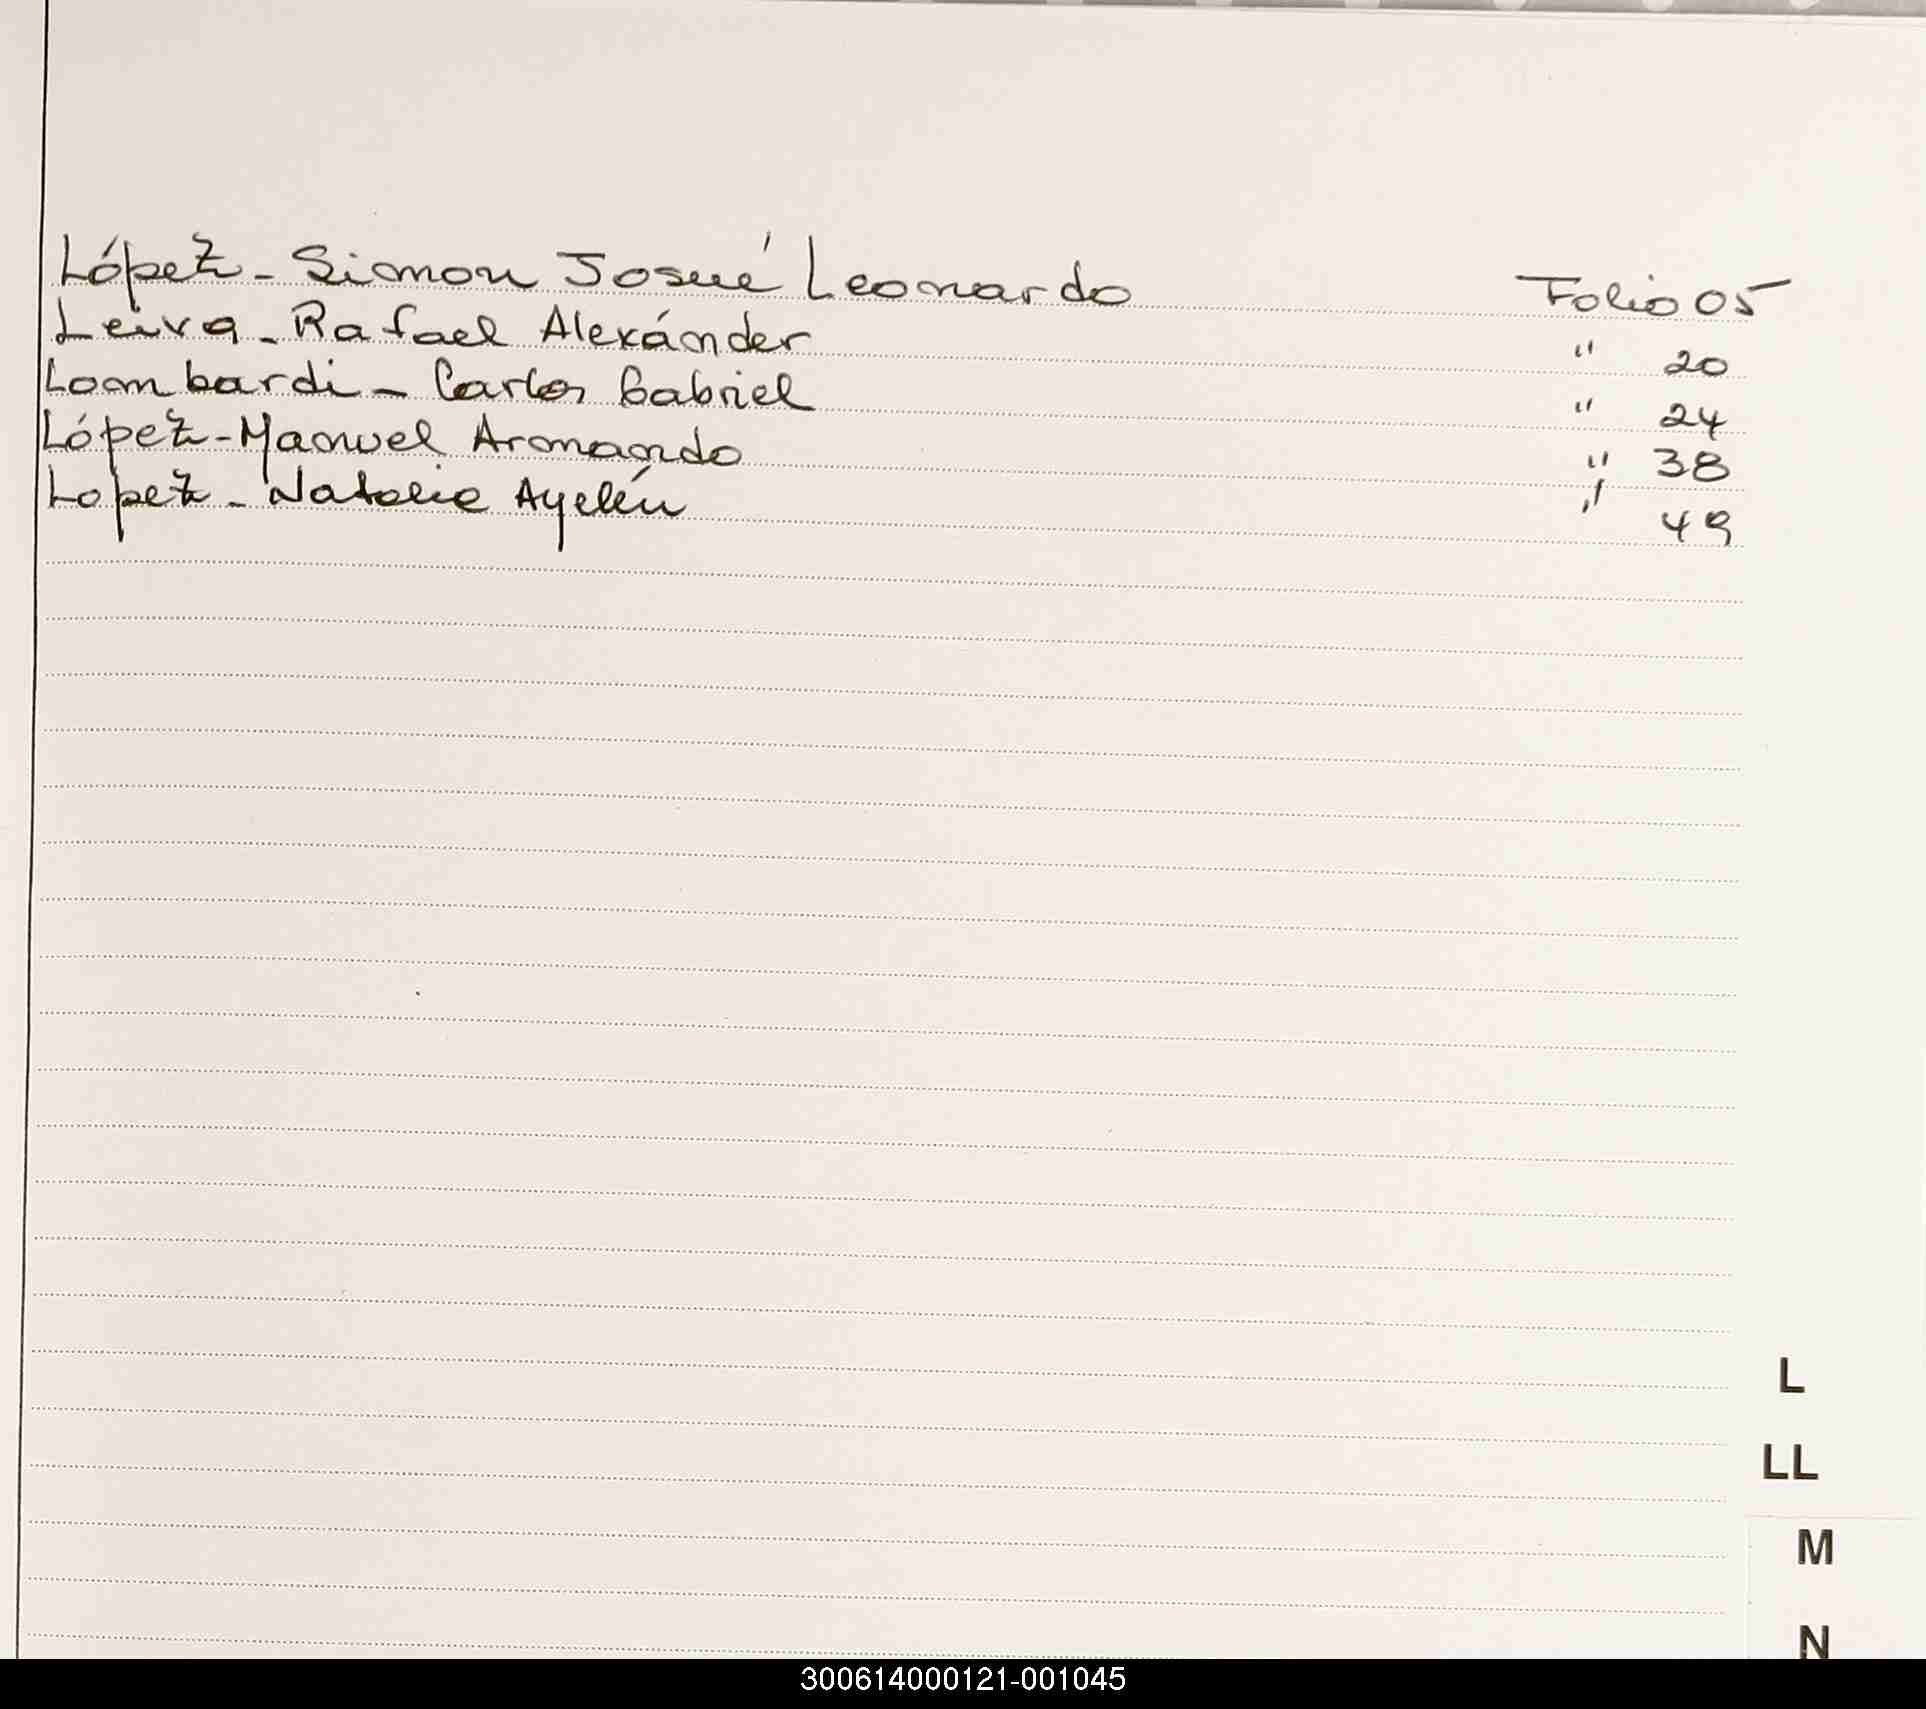 López - Simon Josué Leonardo Folio 05
Leiva - Rafael Alexánder " 20
Lombardi - Carlos Gabriel " 24
López - Manuel Armando " 38
Lopez - Natalie Ayelén " 49
L
LL
M
N
300614000121-001045